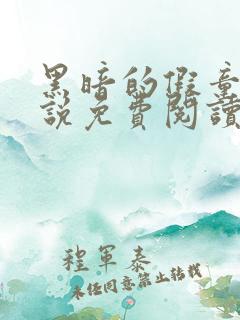 黑暗的假童
說免費閱讀
程軍泰
未经同意禁止转载